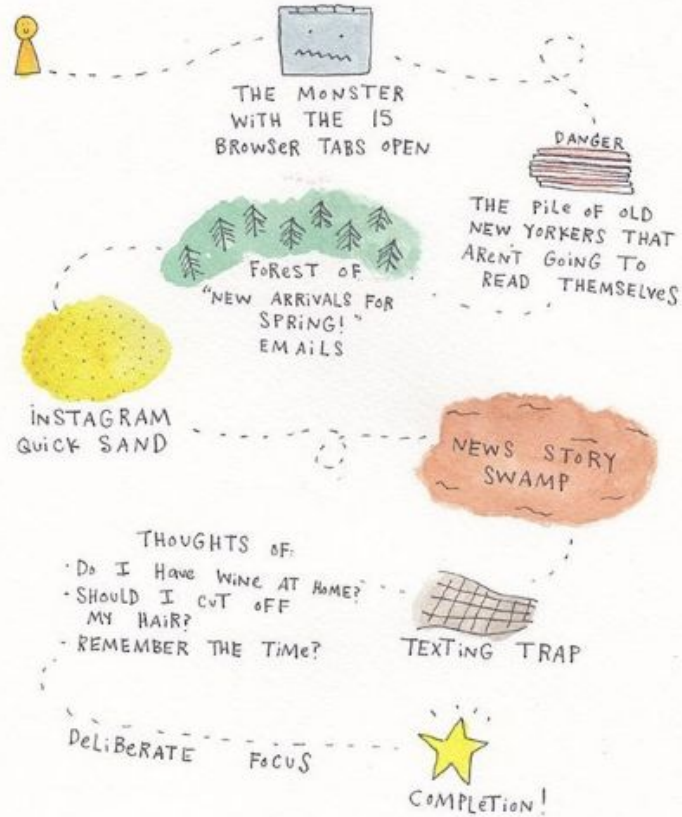 THE MONSTER
WiTH THE 15
BROWSER TABS OPEN
DANGER
THE PiLE OF OLD
NEW YORKERS THAT
AREN'T GOING TO
READ THEMSELVES
FOREST OF
"NEW ARRIVALS FOR
SPRING!"
EMAiLS
iNSTAGRAM
QUiCK SAND
NEWS STORY
SWAMP
THOUGHTS OF:
· Do I HAVE WiNE AT HOME?
- SHOULD I CUT OFF
MY HAiR?
- REMEMBER THE TiMe?
TEXTiNG TRAP
DeLiBeRATE FOCUS
COMPLeTiON!